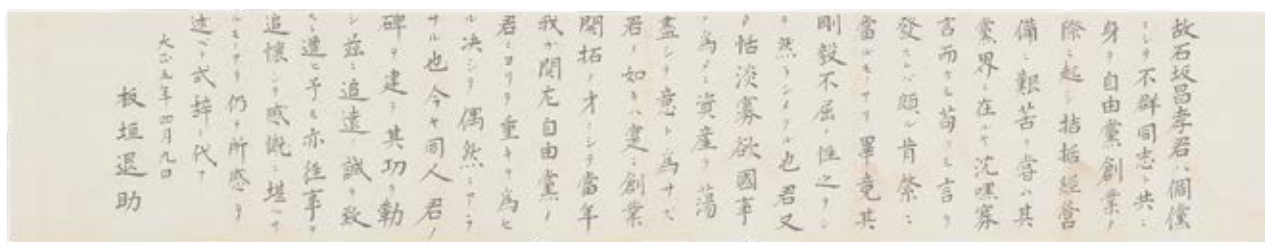 故石坂昌孝君ハ倜儻
ニシテ不群同志ト共ニ
身ヲ自由黨創業ノ
際ニ起シ拮据經營
備ニ艱苦ヲ嘗ム其
黨界ニ在ルヤ沈黙寡
言而カモ苟クモ言ヲ
發セハ頗ル肯綮ニ
當ルモノアリ畢竟其
剛毅不屈ノ性之ヲシ
テ然ラシメタル也君又
タ恬淡寡欲國事
ノ為メニ資産ヲ蕩
盡シテ意ト為サス
君ノ如キハ寔ニ創業
開拓ノ才ニシテ當年
我カ関左自由黨ノ
君ニヨリテ重キヲ為セ
ル決シテ偶然ニアラ
サル也今ヤ同人君ノ
碑ヲ建テ其功ヲ勒
シ茲ニ追遠ノ誠ヲ致
サル遭ヒ予モ亦往事ヲ
追懐シテ感慨ニ堪ヘサ
ルモノアリ仍テ所感ヲ
述ヘテ式辞ニ代フ
大正五年四月九日
板垣退助